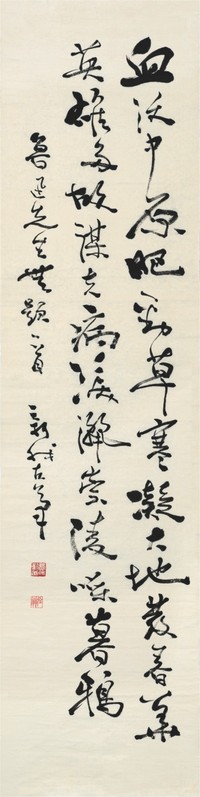 血沃中原肥勁草寒凝大地發春華
英雄多故謀夫病淚灑崇陵噪暮鴉
魯迅先生無題一首 新我左筆